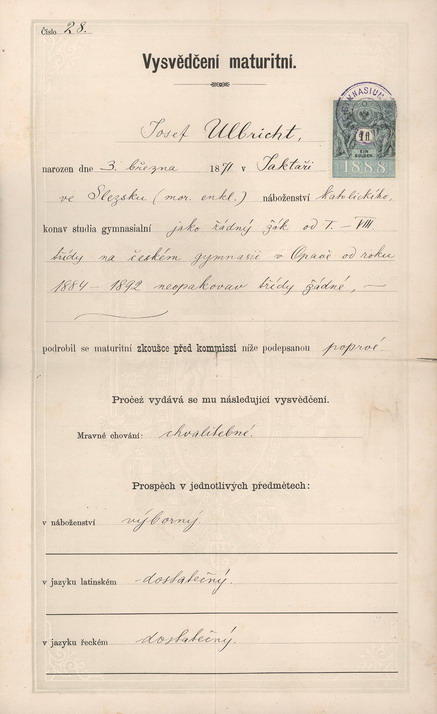 Číslo 28.
Vysvědčení maturitní.
Josef Ulbricht,
narozen dne 3. března 1871 v Jaktaři
ve Slezsku (mor. enkl.) náboženství katolického,
konav studia gymnasialní jako řádný žák od I. – VIII
třídy na českém gymnasii v Opavě od roku
1884 – 1892 neopakovav třídy žádné, —
podrobil se maturitní zkoušce před kommissí níže podepsanou poprvé.
Pročež vydává se mu následující vysvědčení.
Mravné chování: chvalitebné.
Prospěch v jednotlivých předmětech:
v náboženství výborný
v jazyku latinském dostatečný.
v jazyku řeckém dostatečný.
1 fl
EIN
GULDEN
1888